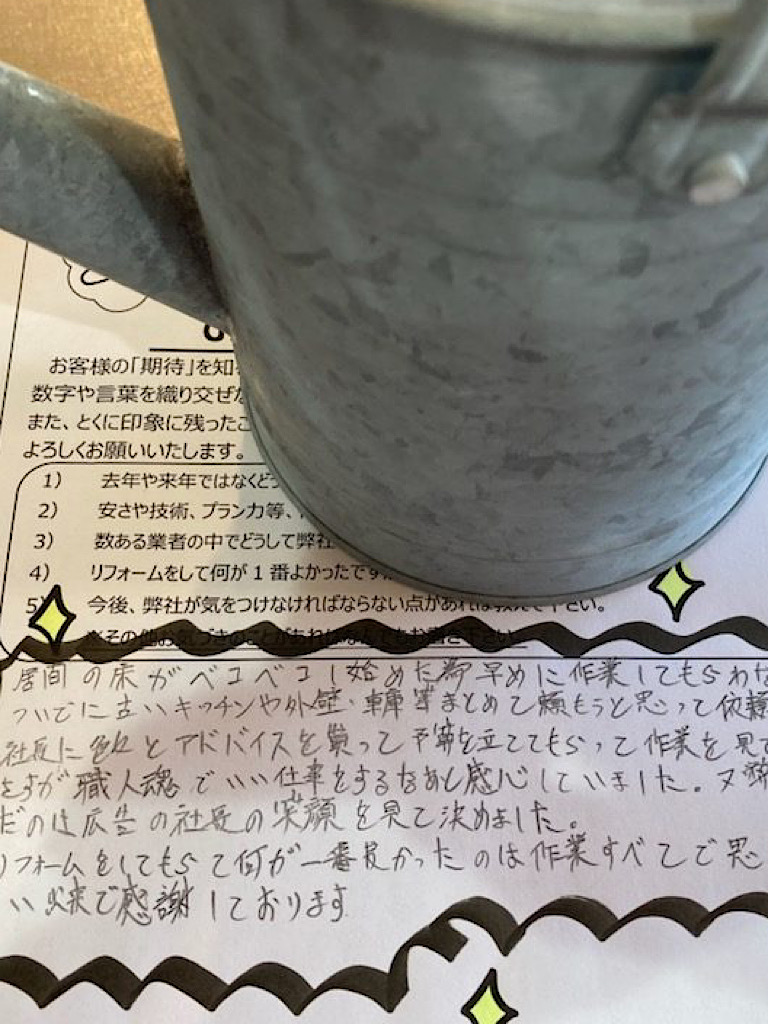 お客様の「期待」を知
数字や言葉を織り交ぜ
また、とくに印象に残ったこ
よろしくお願いいたします。
1） 去年や来年ではなくどう
2） 安さや技術、プラン力等、
3） 数ある業者の中でどうして弊社
4） リフォームをして何が１番よかったです
5） 今後、弊社が気をつけなければならない点があれば教えて下さい。
※その他お気づきのことがあればなんでもお書き下さい
居間の床がベコベコし始めた為早めに作業してもらわな
ついでに古いキッチンや外壁・車庫等まとめて頼もうと思って依頼
社長に色々とアドバイスを貰って予算を立ててもらって作業を見て
さすが職人魂でいい仕事をするなあと感心していました。又
だのは広告の社長の笑顔を見て決めました。
リフォームをしてもらって何が一番良かったのは作業すべてで思
で感謝しております